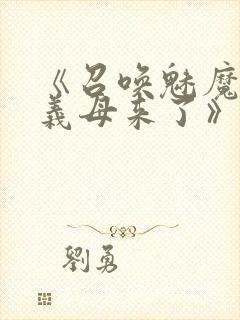 《召唤魅魔
義母来了》
劉勇